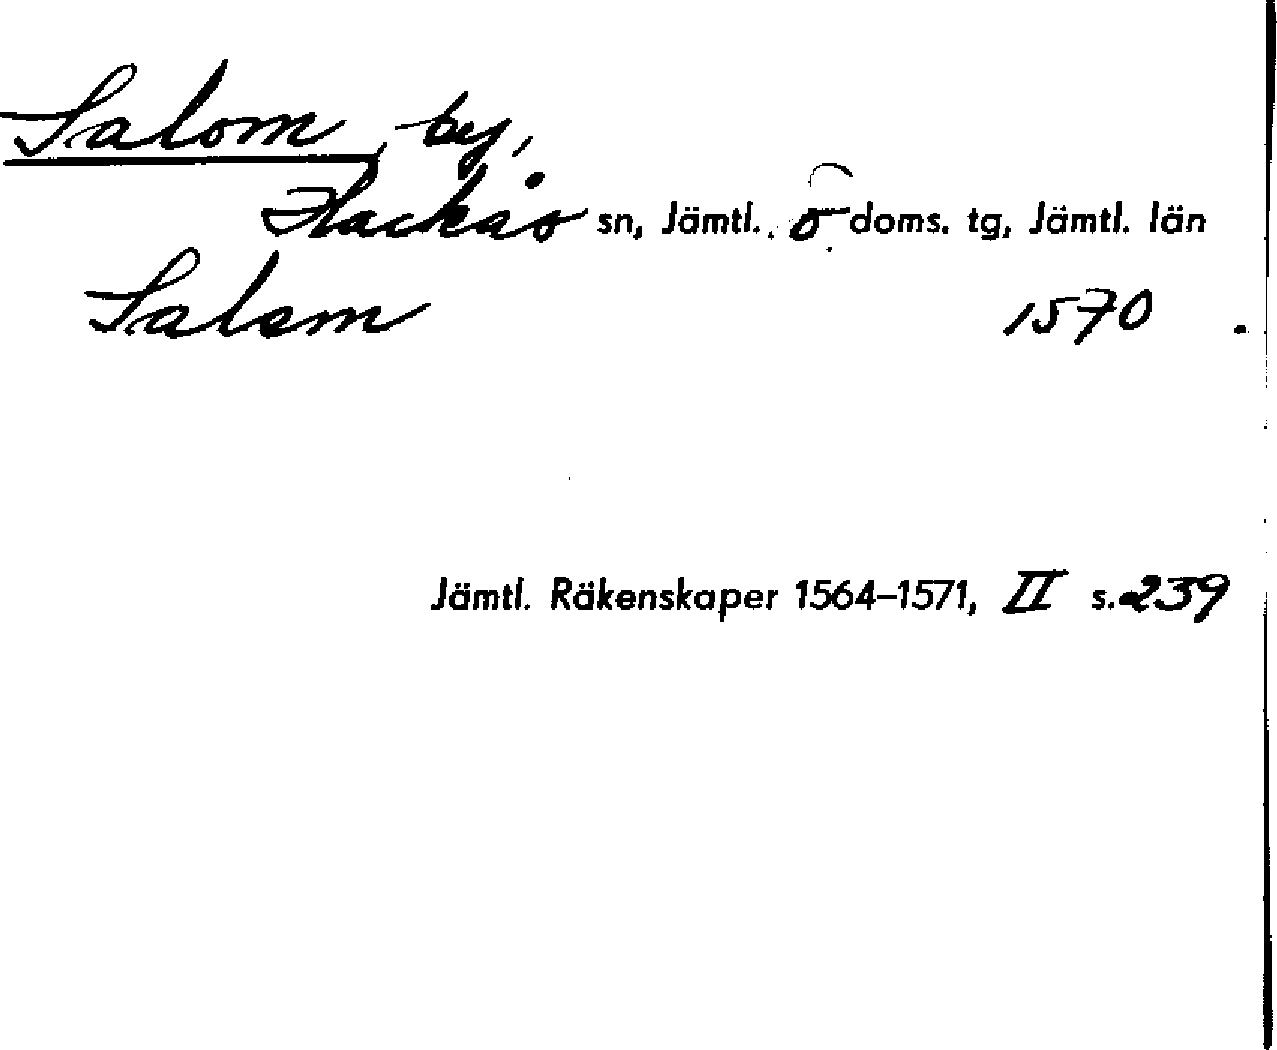 Salom, by,
Hackås sn, Jämtl. ö doms. tg, Jämtl. län
Salem 1570
Jämtl. Räkenskaper 1564–1571, II s. 239